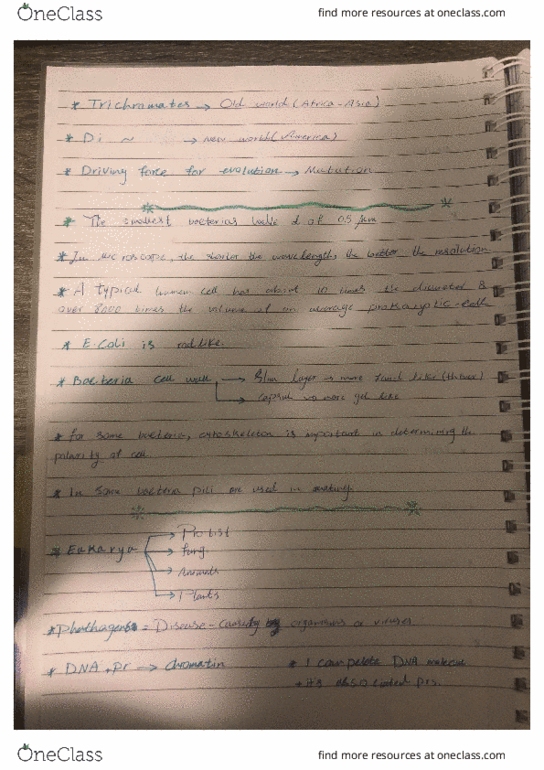 OneClass
find more resources at oneclass.com
* Trichromates → Old world (Africa-Asia)
* Di ~ → New world (America)
* Driving force for evolution → Mutation
* The smallest bacterias have d of 0.5 µm
* In microscope, the shorter the wavelength, the better the resolution
* A typical human cell has about 10 times the diameter &
over 8000 times the volume of an average prokaryotic cell
* E-Coli is rodlike.
* Bacteria cell wall → Slim layer → more
→ capsul → more gel like
* for some bacteria, cytoskeleton is important in determining the
polarity of cell
* In some bacteria pili are used in mating.
* Eukarya → Protist
→ fungi
→ Animals
→ Plants
= Disease-Causing organisms or viruses
* DNA + pr → chromatin
* 1 complete DNA molecule
+ its associated prs.
OneClass
find more resources at oneclass.com